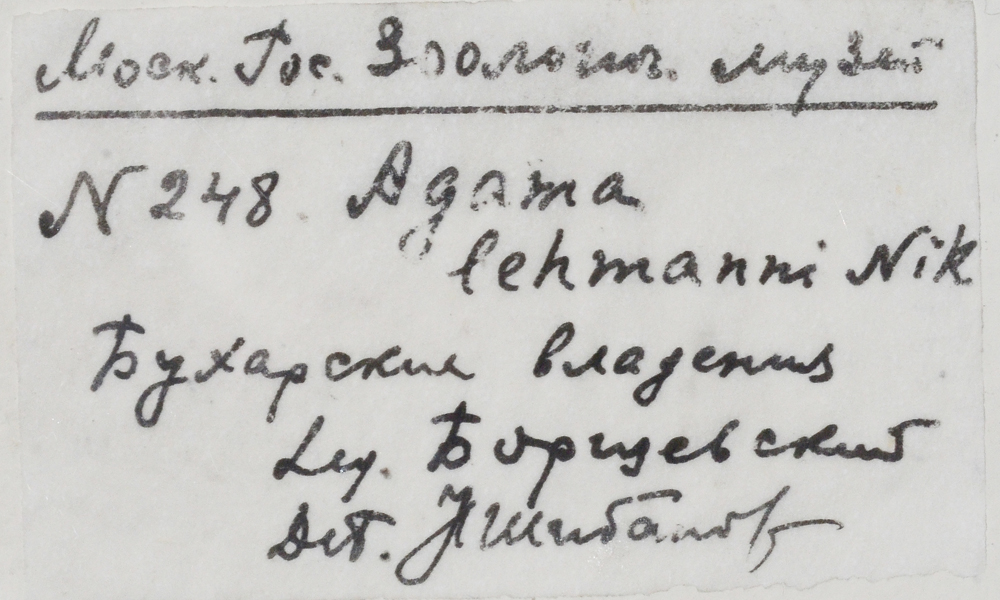 Моск. Гос. Зоологич. музей
N 248 Agama
lehmanni Nik
Бухарские владения
Leg. Борщевский
Det. Н Шибанов